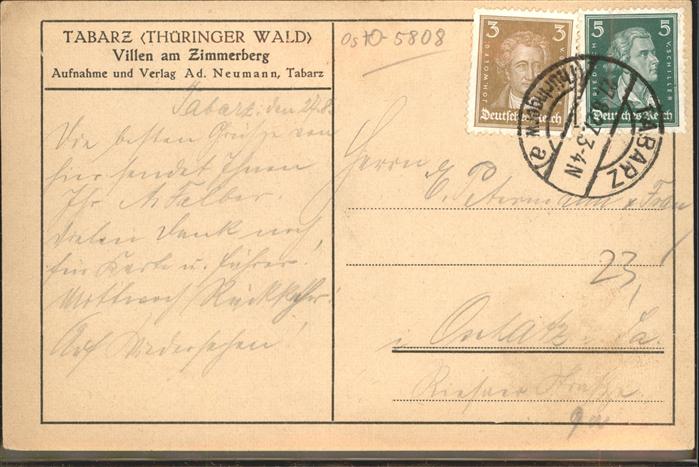 TABARZ (THÜRINGER WALD)
Villen am Zimmerberg
Aufnahme und Verlag Ad. Neumann, Tabarz
Ost10-5808
3 3
JOH. WOLFG. V.
Deutsches Reich
5 5
FRIEDRICH V. SCHILLER
Deutsches Reich
TABARZ
(Thüringerw)
3-4N
a
Tabarz, den 27.8.
Die besten Grüße von
hier sendet Ihnen
Ihr A. Felber.
Vielen Dank noch
für Karte u. Führer!
Mittwoch Rückkehr!
Auf Wiedersehen!
Herrn
E. Petermann u. Frau
23,
i. Oschatz i. Sa.
Riesaer Straße